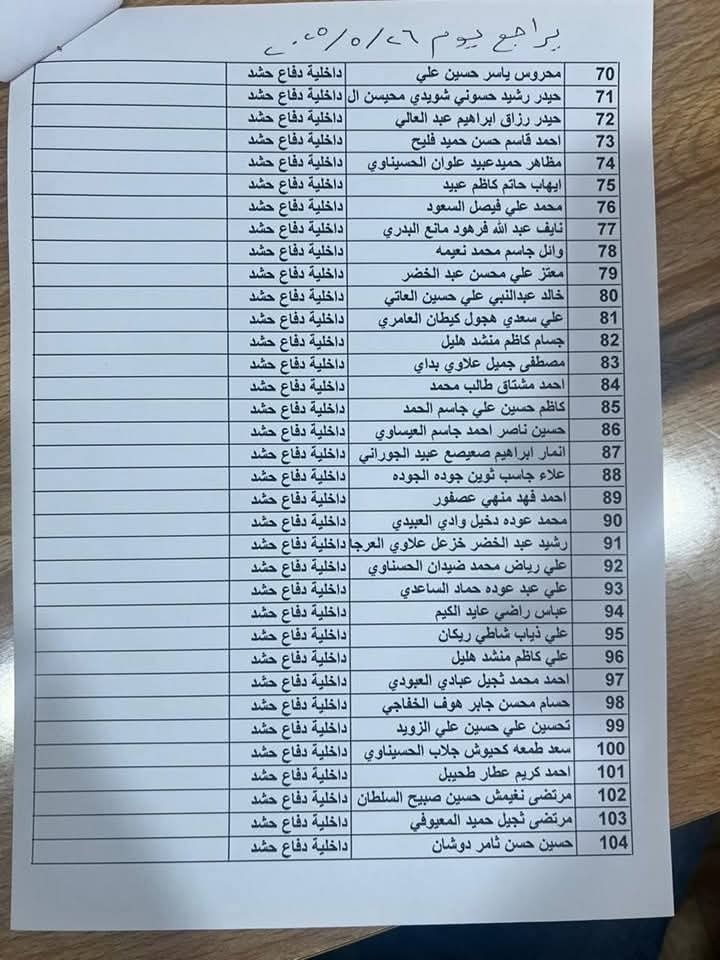 يراجع يوم ٢٠٢٥/٥/٢٦
70 محروس ياسر حسين علي داخلية دفاع حشد
71 حيدر رشيد حسوني شويدي محيسن ال داخلية دفاع حشد
72 حيدر رزاق ابراهيم عبد العالي داخلية دفاع حشد
73 احمد قاسم حسن حميد فليح داخلية دفاع حشد
74 مظاهر حميدعبيد علوان الحسيناوي داخلية دفاع حشد
75 ايهاب حاتم كاظم عبيد داخلية دفاع حشد
76 محمد علي فيصل السعود داخلية دفاع حشد
77 نايف عبد الله فرهود مانع البدري داخلية دفاع حشد
78 وائل جاسم محمد نعيمه داخلية دفاع حشد
79 معتز علي محسن عبد الخضر داخلية دفاع حشد
80 خالد عبدالنبي علي حسين العاتي داخلية دفاع حشد
81 علي سعدي هجول كيطان العامري داخلية دفاع حشد
82 جسام كاظم منشد هليل داخلية دفاع حشد
83 مصطفى جميل علاوي بداي داخلية دفاع حشد
84 احمد مشتاق طالب محمد داخلية دفاع حشد
85 كاظم حسين علي جاسم الحمد داخلية دفاع حشد
86 حسين ناصر احمد جاسم العيساوي داخلية دفاع حشد
87 انمار ابراهيم صعيصع عبيد الجوراني داخلية دفاع حشد
88 علاء جاسب ثوين جوده الجوده داخلية دفاع حشد
89 احمد فهد منهي عصفور داخلية دفاع حشد
90 محمد عوده دخيل وادي العبيدي داخلية دفاع حشد
91 رشيد عبد الخضر خزعل علاوي العرجا داخلية دفاع حشد
92 علي رياض محمد ضيدان الحسناوي داخلية دفاع حشد
93 علي عبد عوده حماد الساعدي داخلية دفاع حشد
94 عباس راضي عايد الكيم داخلية دفاع حشد
95 علي ذياب شاطي ريكان داخلية دفاع حشد
96 علي كاظم منشد هليل داخلية دفاع حشد
97 احمد محمد ثجيل عبادي العبودي داخلية دفاع حشد
98 حسام محسن جابر هوف الخفاجي داخلية دفاع حشد
99 تحسين علي حسين علي الزويد داخلية دفاع حشد
100 سعد طمعه كحيوش جلاب الحسيناوي داخلية دفاع حشد
101 احمد كريم عطار طحيبل داخلية دفاع حشد
102 مرتضى نغيمش حسين صبيح السلطان داخلية دفاع حشد
103 مرتضى ثجيل حميد المعيوفي داخلية دفاع حشد
104 حسين حسن ثامر دوشان داخلية دفاع حشد